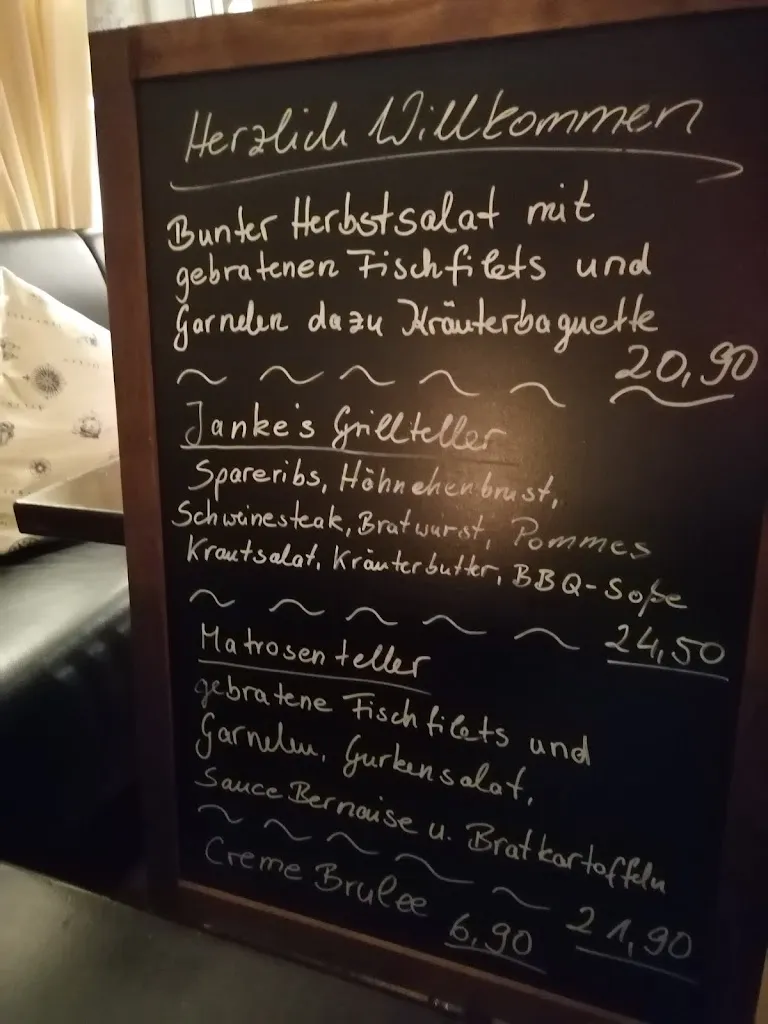 Herzlich Willkommen
Bunter Herbstsalat mit
gebratenen Fischfilets und
Garnelen dazu Kräuterbaguette
20,90
~ ~ ~ ~ ~
Janke's Grillteller
Spareribs, Hähnchenbrust,
Schweinesteak, Bratwurst, Pommes
Krautsalat, Kräuterbutter, BBQ-Soße
~ ~ ~ ~ ~
24,50
Matrosenteller
gebratene Fischfilets und
Garnelen, Gurkensalat,
Sauce Bernaise u. Bratkartoffeln
~ ~ ~ ~ ~
21,90
Creme Brulee
6,90